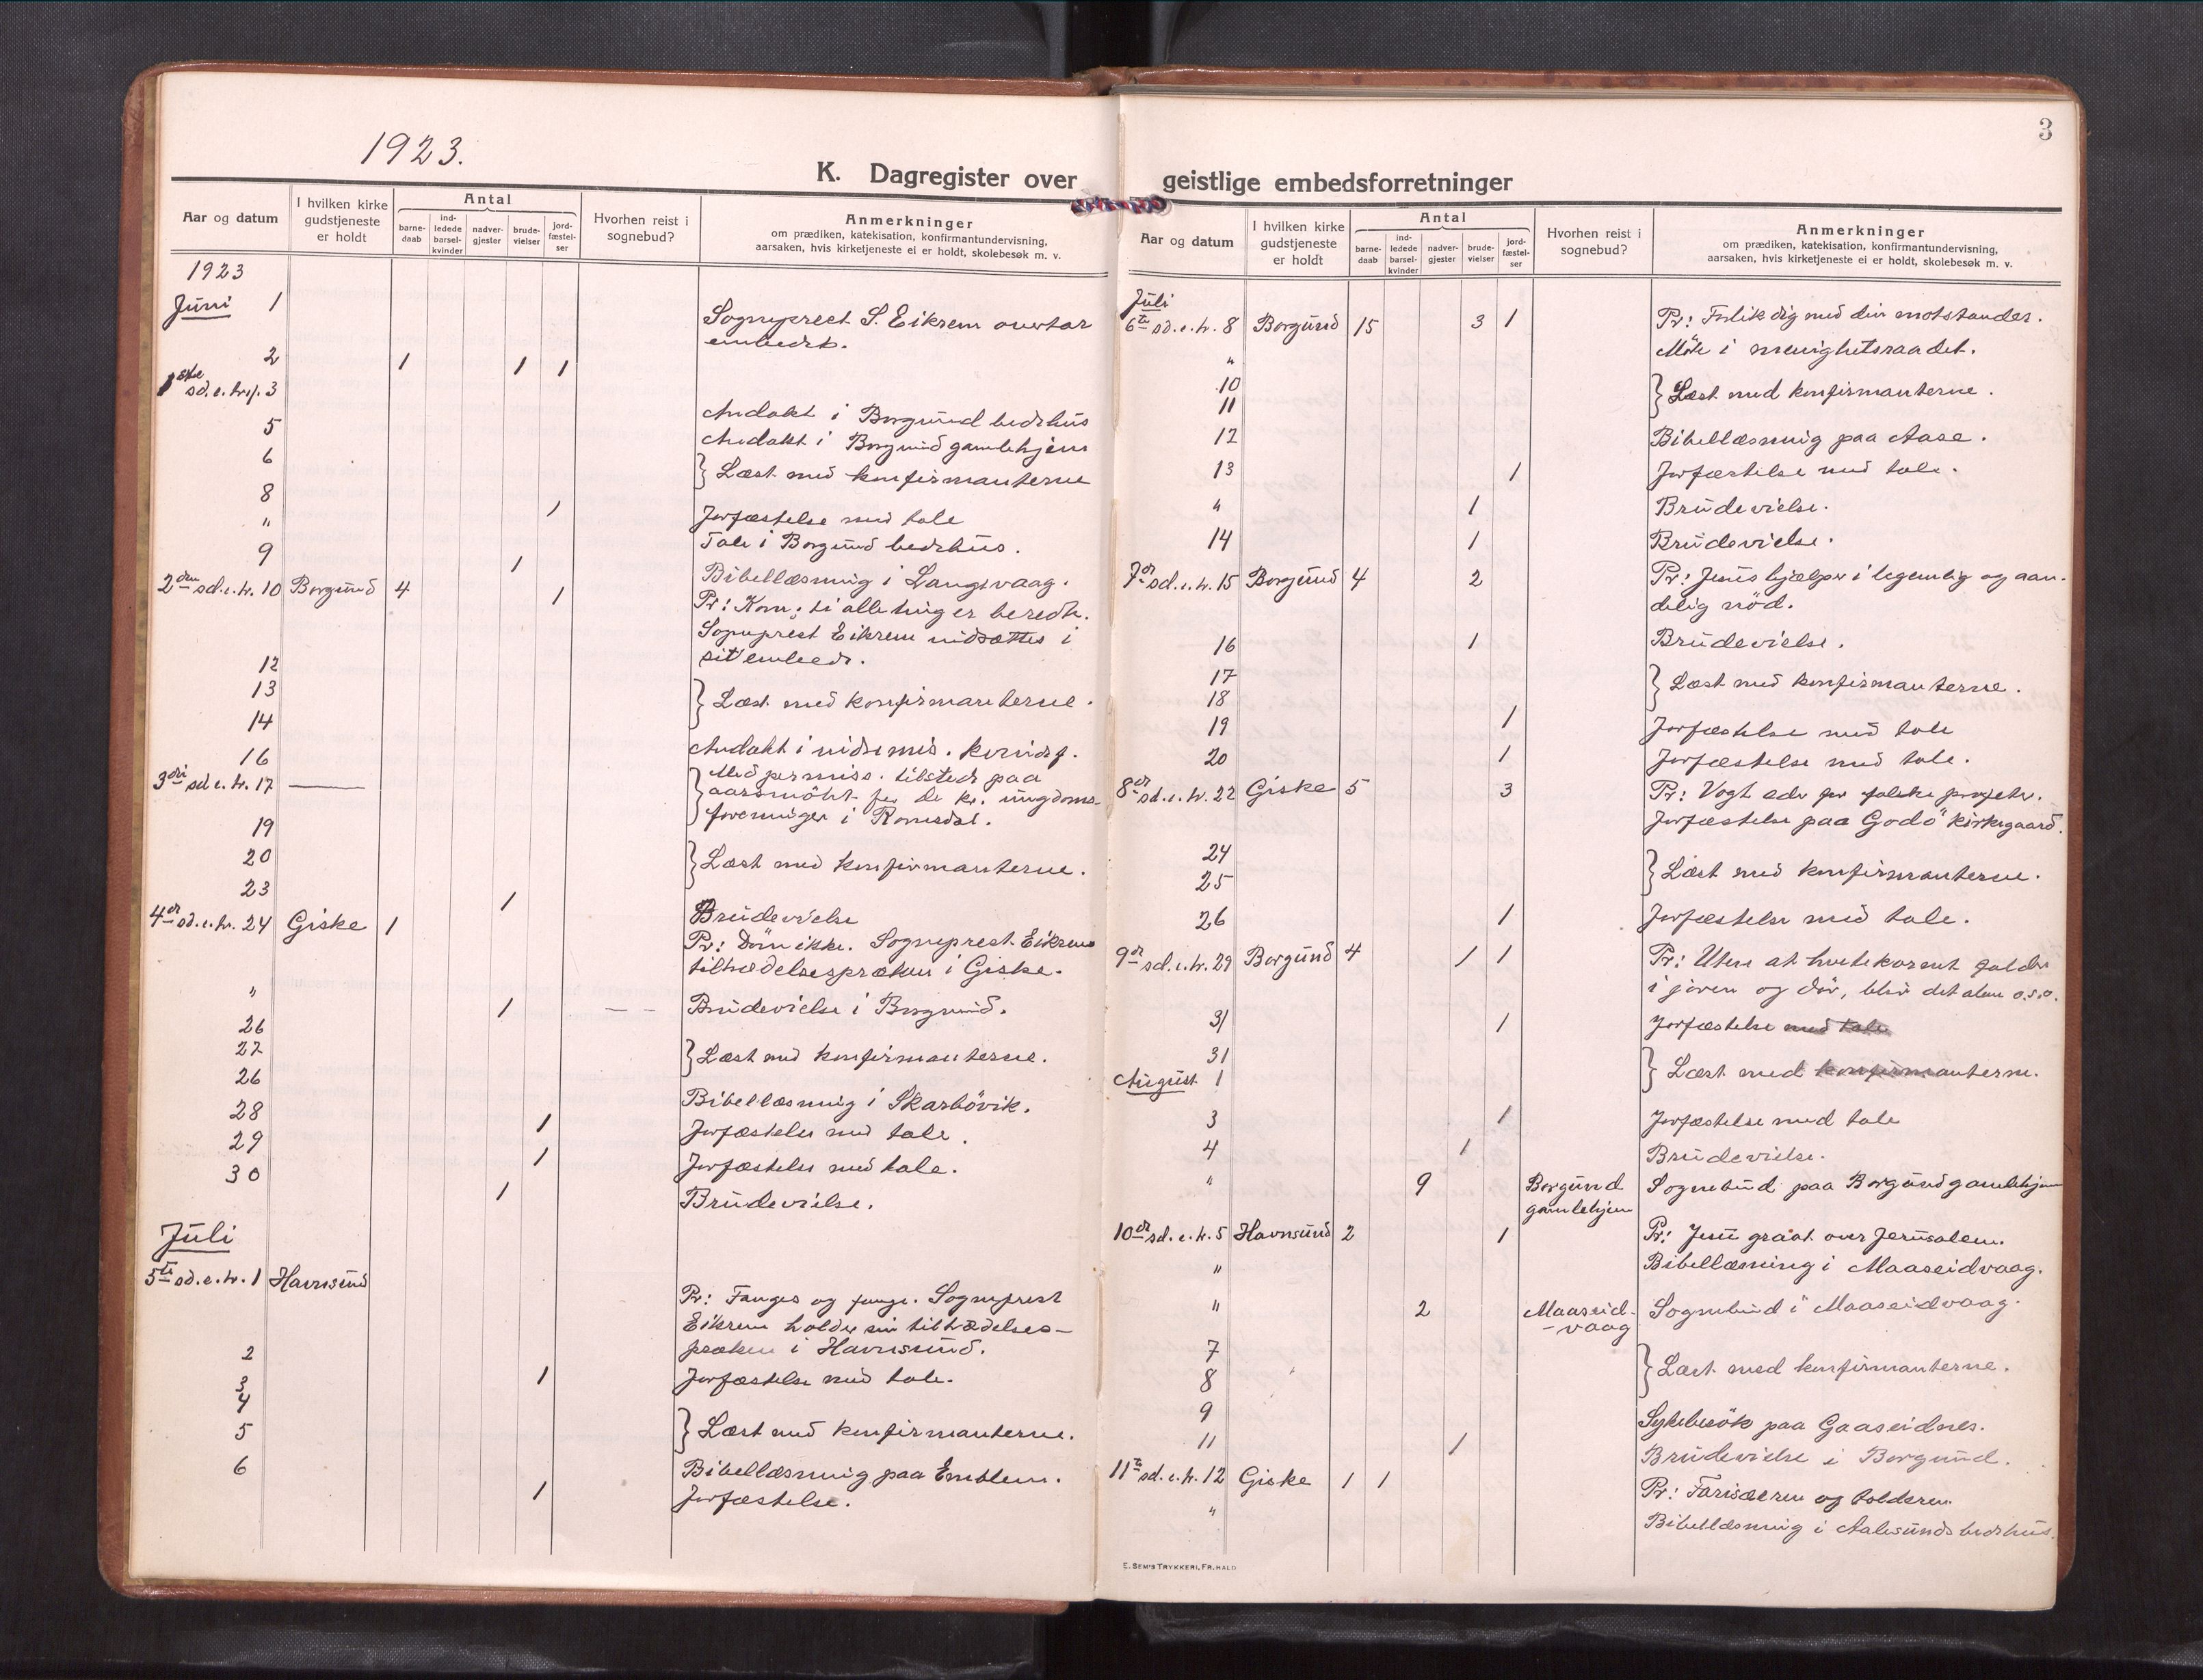 1923.
K. Dagregister over
Aar og datum
I hvilken kirke gudstjeneste er holdt
Antal
barne-daab
ind-ledede barsel-kvinder
nadver-gjester
brude-vielser
jord-fæstel-ser
Hvorhen reist i sognebud?
Anmerkninger
om prædiken, katekisation, konfirmantundervisning,
aarsaken, hvis kirketjeneste ei er holdt, skolebesøk m. v.
1923
Juni 1 Sogneprest S. Eikrem overtar
embedet.
2 1 1 1
1ste sd. e. trf. 3
Andakt i Borgund bedehus
5 Andakt i Borgund gamlehjem
6 } Læst med konfirmanterne
8 1 Jorfæstelse med tale
" Tale i Borgund bedehus.
9 1 Bibellæsning i Langevaag.
2den sd. e. tr. 10 Borgund 4 1 Pr: Kom; ti alle ting er beredt.
Sogneprest Eikrem indsættes i
sit embede.
12
13 } Læst med konfirmanterne.
14
16 Andakt i indremis. kvindef.
3die sd e. tr. 17 — } Med permiss. tilstede paa
aarsmöte for de kr. ungdoms-
foreninger i Romsdal.
19
20 } Læst med konfirmanterne.
23 1 Brudevielse
4de sd. e. tr. 24 Giske 1 Pr: Döm ikke. Sogneprest Eikrems
tiltrædelsespræken i Giske.
" 1 — — Brudevielse i Borgund.
26
27 } Læst med konfirmanterne.
26 Bibellæsning i Skarbövik.
28 1 Jorfæstelse med tale.
29 1 Jorfæstelse med tale.
30 1 Brudevielse.
Juli
5te sd. e. tr. 1 Havnsund
Pr: Fanges og fange. Sogneprest
Eikrem holder sin tiltrædelses-
præken i Havnsund.
2 1 Jorfæstelse med tale.
3
4 } Læst med konfirmanterne.
5 Bibellæsning paa Emblem.
6 1 Jorfæstelse.
3
geistlige embedsforretninger
Aar og datum
I hvilken kirke gudstjeneste er holdt
Antal
barne-daab
ind-ledede barsel-kvinder
nadver-gjester
brude-vielser
jord-fæstel-ser
Hvorhen reist i sognebud?
Anmerkninger
om prædiken, katekisation, konfirmantundervisning,
aarsaken, hvis kirketjeneste ei er holdt, skolebesøk m. v.
Juli
6te sd. e. tr. 8 Borgund 15 3 1 Pr: Forlik dig med din motstander.
" Möte i menighetsraadet.
10
11 } Læst med konfirmanterne.
12 Bibellæsning paa Aase.
13 1 Jorfæstelse med tale.
" 1 Brudevielse.
14 1 Brudevielse.
7de sd. e. tr. 15 Borgund 4 2 Pr: Jesus hjælper i legemlig og aan-
delig nöd.
16 1 Brudevielse.
17
18 } Læst med konfirmanterne.
19 1 Jorfæstelse med tale
20 1 Jorfæstelse med tale.
8de sd. e. tr. 22 Giske 5 3 Pr: Vogt eder for falske profeter.
Jorfæstelse paa Godö kirkegaard.
24
25 } Læst med konfirmanterne.
26 1 Jorfæstelse med tale.
9de sd. e. tr. 29 Borgund 4 1 1 Pr: Uten at hvetekornet falder
i jorden og dör, blir det alene o.s.v.
31 1 Jorfæstelse med tale
31
August 1 } Læst med konfirmanterne.
3 1 Jorfæstelse med tale
4 1 Brudevielse.
" 9 Borgund gamlehjem Sognebud paa Borgund gamlehjem
10de sd. e. tr. 5 Havnsund 2 1 Pr: Jesu graat over Jerusalem.
" Bibellæsning i Maaseidvaag.
" 2 Maaseid-
-vaag Sognebud i Maaseidvaag.
7
8 } Læst med konfirmanterne.
9 Sykebesök paa Gaaseidnes.
11 1 Brudevielse i Borgund.
11te sd. e. tr. 12 Giske 1 1 Pr: Farisæeren og tolderen
" Bibellæsning i Aalesunds bedehus.
E. SEM'S TRYKKERI, FR.HALD